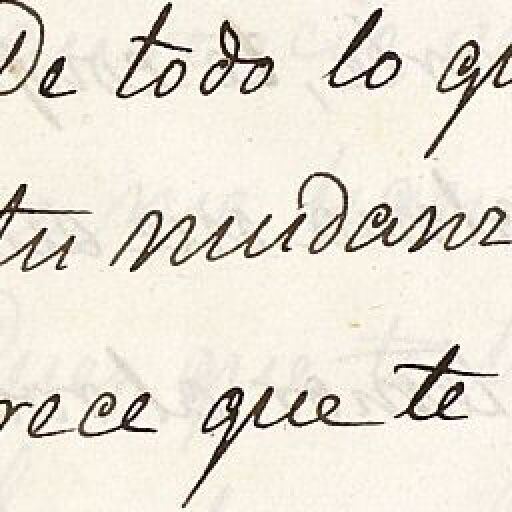 De todo lo qu
tu mudanz
rece que te